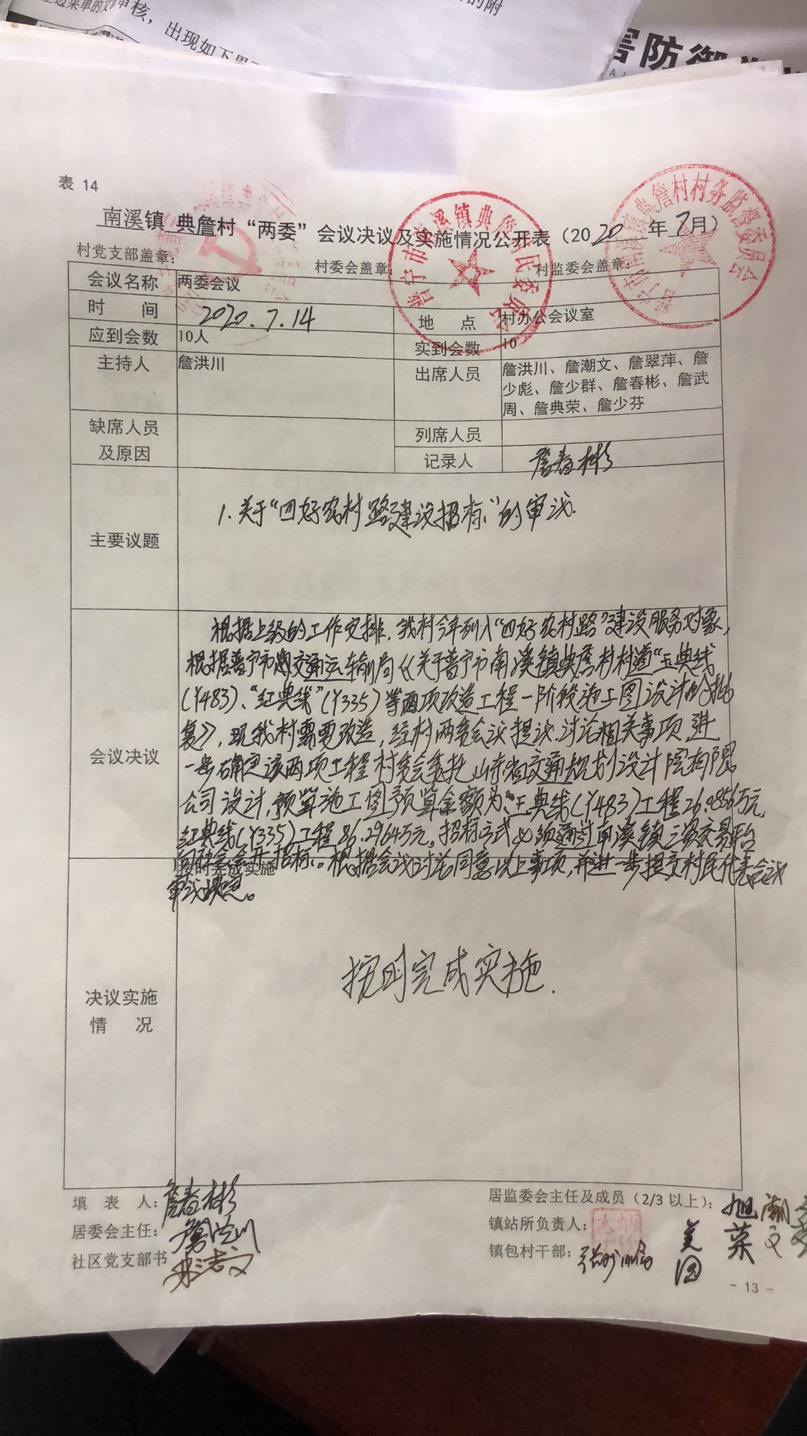 审核，出现如下
的附
害防御
表 14
南溪镇 典詹村“两委”会议决议及实施情况公开表（2020 年 7月）
村党支部盖章：
村委会盖章：
村监委会盖章：
普宁市南溪镇典詹村村民委员会
普宁市南溪镇典詹村村务监督委员会
会议名称 两委会议
时 间 2020.7.14 地 点 村办公会议室
应到会数 10人 实到会数 10
主持人 詹洪川 出席人员 詹洪川、詹潮文、詹翠萍、詹
少彪、詹少群、詹春彬、詹武
周、詹典荣、詹少芬
缺席人员
及原因
列席人员
记录人 詹春彬
主要议题 1.关于“四好农村路建设招标”的审议.
会议决议
根据上级的工作安排，我村今年列入“四好农村路”建设服务对象，
根据普宁市交通运输局《关于普宁市南溪镇典詹村村道“玉典线
(Y483)、“红典线”(Y335)等两项改造工程一阶段施工图设计的批
复》，现我村需要改造，经村两委会议提议.讨论相关事项，进
一步确定该两项工程村委会委托山东省交通规划设计院有限
公司设计，预算施工图预算金额为：玉典线(Y483)工程26.9856万元，
红典线(Y335)工程86.2964万元。招标方式必须通过南溪镇三资交易平台
向社会公开招标。根据会议讨论同意以上事项，并进一步提交村民代表会议
审议决定。
按时完成实施
决议实施
情 况
按时完成实施.
填 表 人：詹春彬
居委会主任：詹洪川
社区党支部书
居监委会主任及成员（2/3 以上）：
镇站所负责人：
镇包村干部：
- 13 -